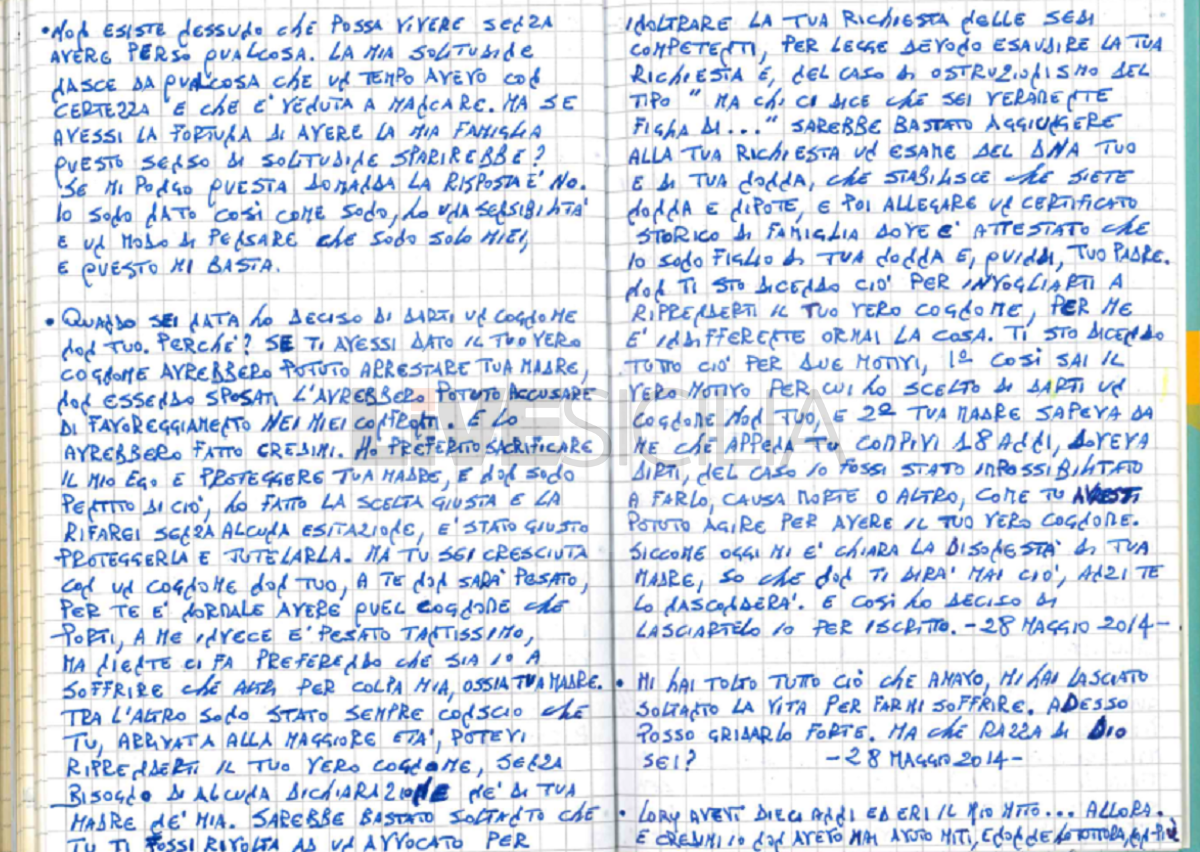 • NON ESISTE NESSUNO CHE POSSA VIVERE SENZA
AVERE PERSO QUALCOSA. LA MIA SOLITUDINE
NASCE DA QUALCOSA CHE UN TEMPO AVEVO CON
CERTEZZA E CHE E' VENUTA A MANCARE. MA SE
AVESSI LA FORTUNA DI AVERE LA MIA FAMIGLIA
QUESTO SENSO DI SOLITUDINE SPARIREBBE?
SE MI PONGO QUESTA DOMANDA LA RISPOSTA E' NO.
IO SONO NATO COSÌ COME SONO, HO UNA SENSIBILITA'
E UN MODO DI PENSARE CHE SONO SOLO MIEI,
E QUESTO MI BASTA.
• QUANDO SEI NATA HO DECISO DI DARTI UN COGNOME
NON TUO. PERCHE'? SE TI AVESSI DATO IL TUO VERO
COGNOME AVREBBERO POTUTO ARRESTARE TUA MADRE,
NON ESSENDO SPOSATI L'AVREBBERO POTUTO ACCUSARE
DI FAVOREGGIAMENTO NEI MIEI CONFRONTI. E LO
AVREBBERO FATTO CREDIMI. HO PREFERITO SACRIFICARE
IL MIO EGO E PROTEGGERE TUA MADRE, E NON SONO
PENTITO DI CIO', HO FATTO LA SCELTA GIUSTA E LA
RIFAREI SENZA ALCUNA ESITAZIONE, E' STATO GIUSTO
PROTEGGERLA E TUTELARLA. MA TU SEI CRESCIUTA
CON UN COGNOME NON TUO, A TE NON SARA' PESATO,
PER TE E' NORMALE AVERE QUEL COGNOME CHE
PORTI, A ME INVECE E' PESATO TANTISSIMO,
MA NIENTE CI FA PREFERENDO CHE SIA IO A
SOFFRIRE CHE ALTRI PER COLPA MIA, OSSIA TUA MADRE.
TRA L'ALTRO SONO STATO SEMPRE CONSCIO CHE
TU, ARRIVATA ALLA MAGGIORE ETA', POTEVI
RIPRENDERTI IL TUO VERO COGNOME, SENZA
BISOGNO DI ALCUNA DICHIARAZIONE NE' DI TUA
MADRE NE' MIA. SAREBBE BASTATO SOLTANTO CHE
TU TI FOSSI RIVOLTA AD UN AVVOCATO PER
INOLTRARE LA TUA RICHIESTA NELLE SEDI
COMPETENTI, PER LEGGE DEVONO ESAUDIRE LA TUA
RICHIESTA E, NEL CASO DI OSTRUZIONISMO DEL
TIPO " MA CHI CI DICE CHE SEI VERAMENTE
FIGLIA DI..." SAREBBE BASTATO AGGIUNGERE
ALLA TUA RICHIESTA UN ESAME DEL DNA TUO
E DI TUA NONNA, CHE STABILISCE CHE SIETE
NONNA E NIPOTE, E POI ALLEGARE UN CERTIFICATO
STORICO DI FAMIGLIA DOVE E' ATTESTATO CHE
IO SONO FIGLIO DI TUA NONNA E, QUINDI, TUO PADRE.
NON TI STO DICENDO CIO' PER INVOGLIARTI A
RIPRENDERTI IL TUO VERO COGNOME, PER ME
E' INDIFFERENTE ORMAI LA COSA. TI STO DICENDO
TUTTO CIO' PER DUE MOTIVI, 1º COSÌ SAI IL
VERO MOTIVO PER CUI HO SCELTO DI DARTI UN
COGNOME NON TUO, E 2º TUA MADRE SAPEVA DA
ME CHE APPENA TU COMPIVI 18 ANNI, DOVEVA
DIRTI, NEL CASO IO FOSSI STATO IMPOSSIBILITATO
A FARLO, CAUSA MORTE O ALTRO, COME TU AVESTI
POTUTO AGIRE PER AVERE IL TUO VERO COGNOME.
SICCOME OGGI MI E' CHIARA LA DISONESTA' DI TUA
MADRE, SO CHE NON TI DIRA' MAI CIO', ANZI TE
LO NASCONDERA'. E COSÌ HO DECISO DI
LASCIARTELO IO PER ISCRITTO. -28 MAGGIO 2014-
• MI HAI TOLTO TUTTO CIÒ CHE AMAVO, MI HAI LASCIATO
SOLTANTO LA VITA PER FARMI SOFFRIRE. ADESSO
POSSO GRIDARLO FORTE. MA CHE RAZZA DI DIO
SEI? -28 MAGGIO 2014-
• LORY AVEVI DIECI ANNI ED ERI IL MIO MITO... ALLORA.
E CREDIMI IO NON AVEVO MAI AVUTO MITI, E NON NE HO
LIVESICILIA